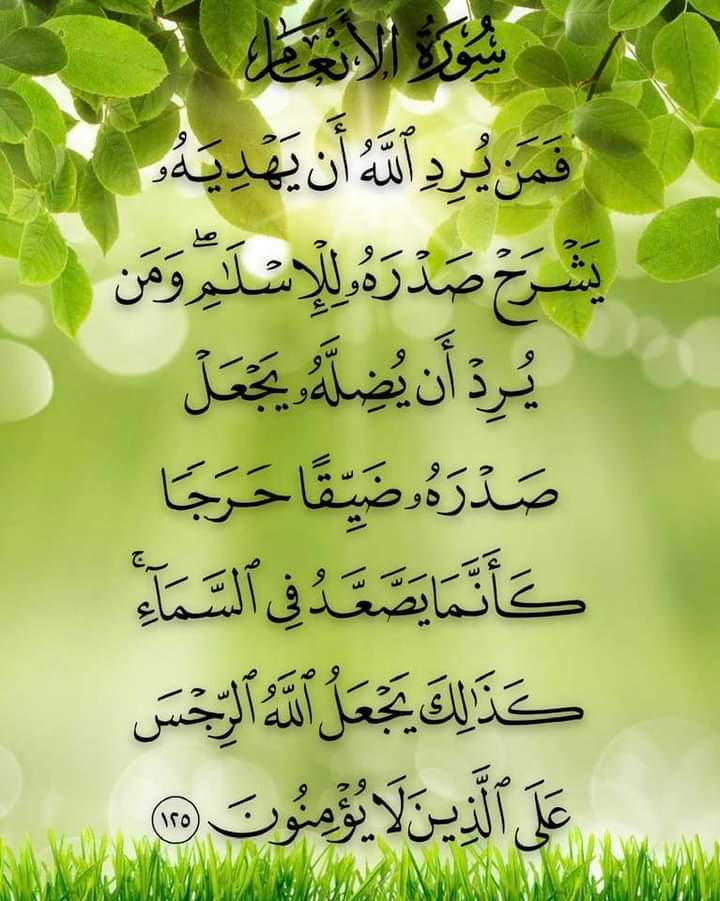 سُورَةُ الأَنْعَام
فَمَن يُرِدِ ٱللَّهُ أَن يَهْدِيَهُۥ
يَشْرَحْ صَدْرَهُۥ لِلْإِسْلَٰمِۖ وَمَن
يُرِدْ أَن يُضِلَّهُۥ يَجْعَلْ
صَدْرَهُۥ ضَيِّقًا حَرَجًا
كَأَنَّمَا يَصَّعَّدُ فِى ٱلسَّمَآءِۚ
كَذَٰلِكَ يَجْعَلُ ٱللَّهُ ٱلرِّجْسَ
عَلَى ٱلَّذِينَ لَا يُؤْمِنُونَ ١٢٥